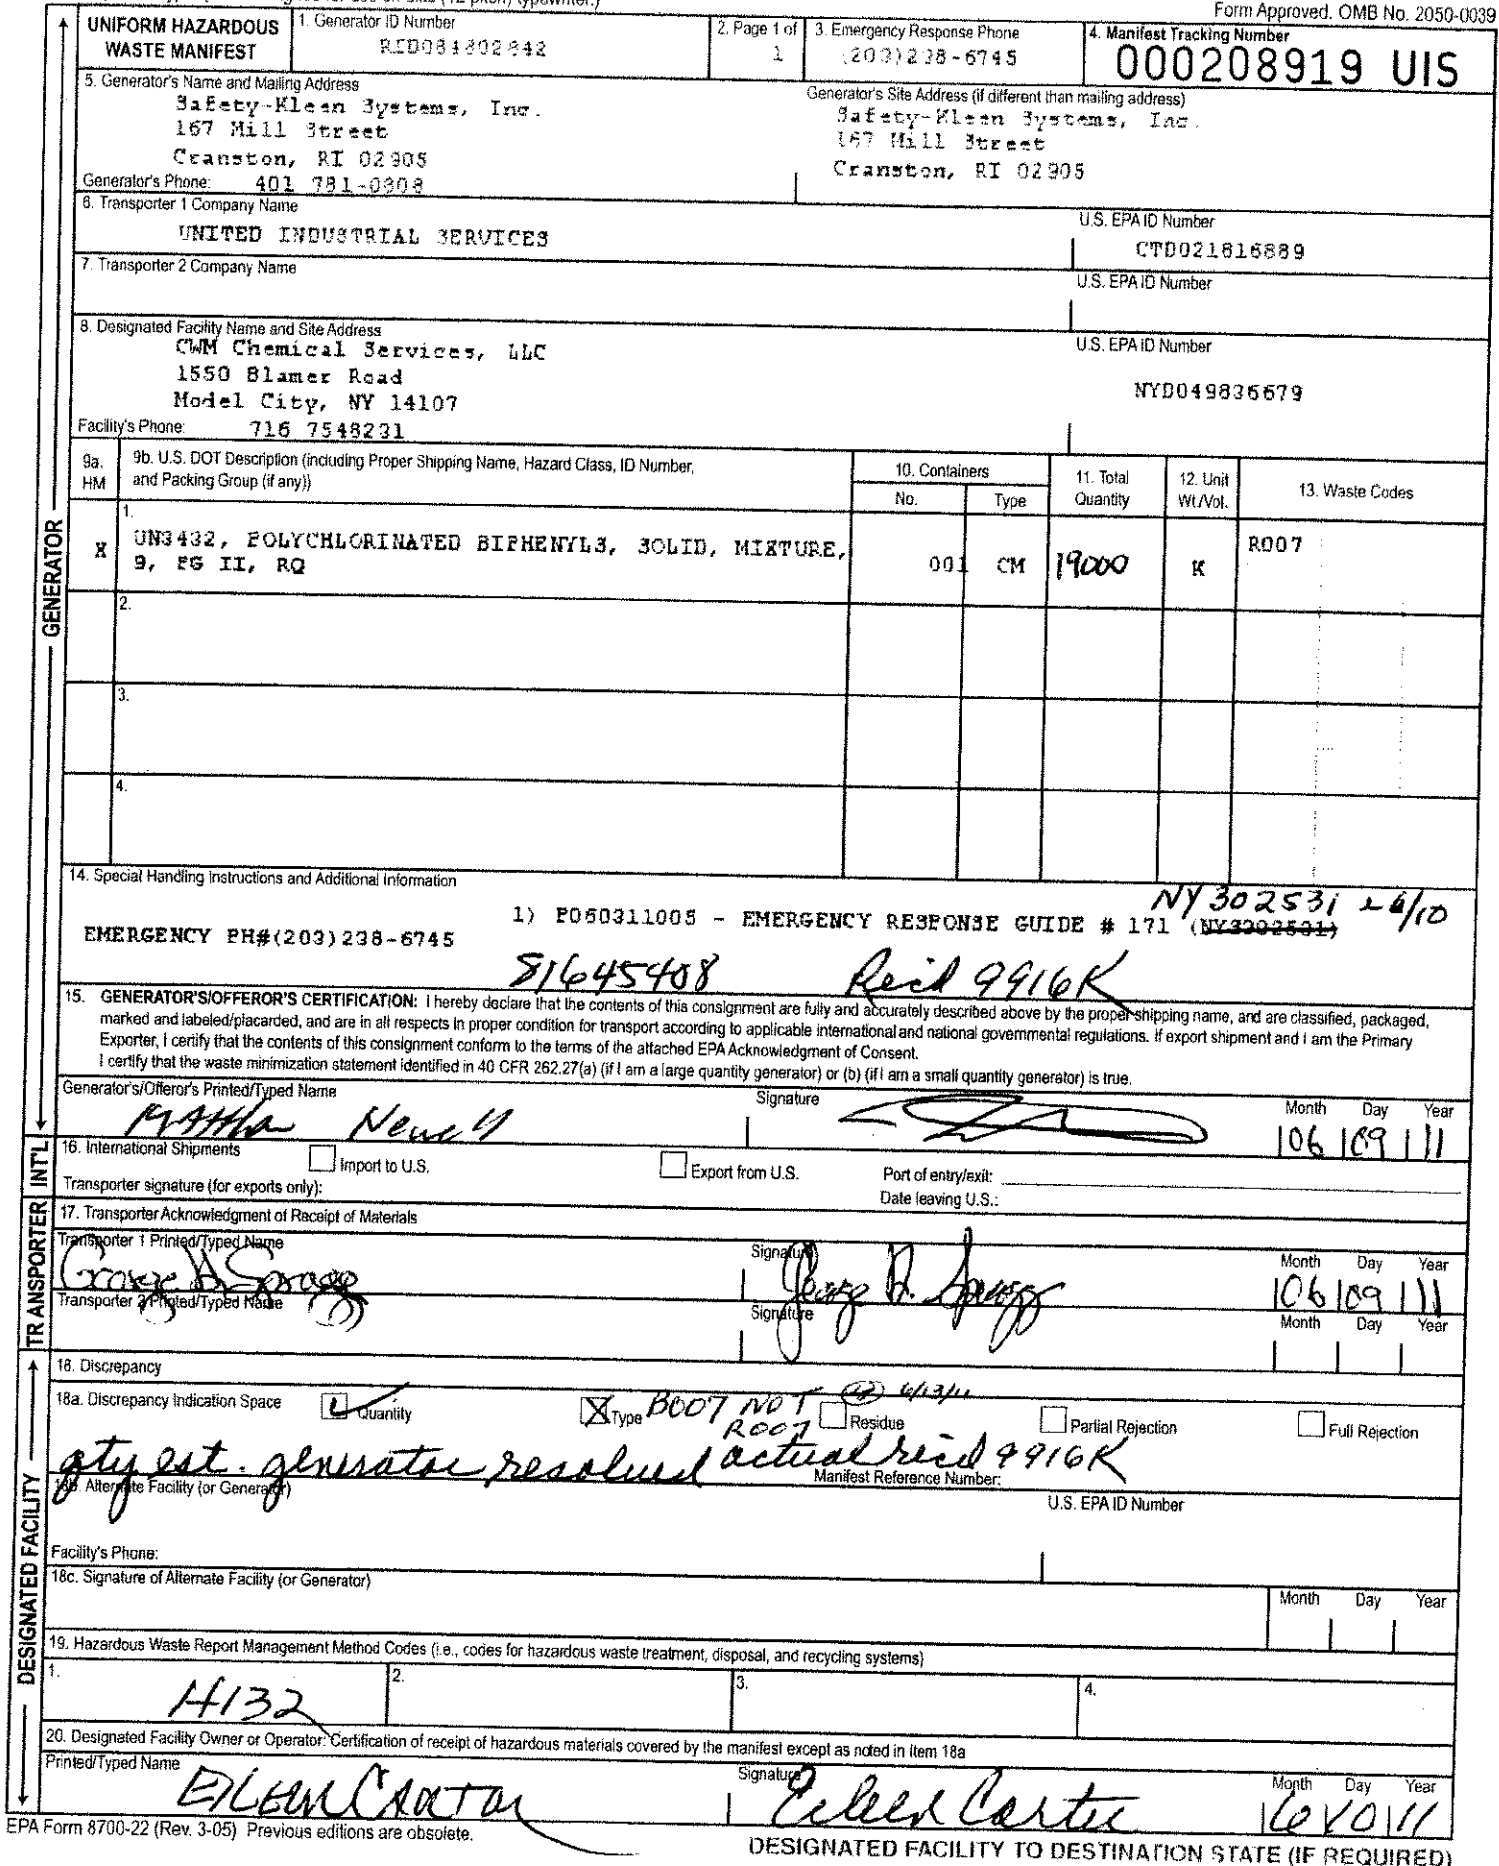 Form Approved. OMB No. 2050-0039
UNIFORM HAZARDOUS WASTE MANIFEST
1. Generator ID Number
RID084802842
2. Page 1 of
1
3. Emergency Response Phone
(203)238-6745
4. Manifest Tracking Number
000208919 UIS
5. Generator's Name and Mailing Address
Safety-Kleen Systems, Inc.
167 Mill Street
Cranston, RI 02905
Generator's Phone: 401 781-0808
Generator's Site Address (if different than mailing address)
Safety-Kleen Systems, Inc.
167 Mill Street
Cranston, RI 02905
6. Transporter 1 Company Name
UNITED INDUSTRIAL SERVICES
U.S. EPA ID Number
CTD021816889
7. Transporter 2 Company Name
U.S. EPA ID Number
8. Designated Facility Name and Site Address
CWM Chemical Services, LLC
1550 Blamer Road
Model City, NY 14107
Facility's Phone: 716 7548231
U.S. EPA ID Number
NYD049836679
9a. HM
9b. U.S. DOT Description (including Proper Shipping Name, Hazard Class, ID Number, and Packing Group (if any))
10. Containers
No.
Type
11. Total Quantity
12. Unit Wt./Vol.
13. Waste Codes
X
1.
UN3432, POLYCHLORINATED BIPHENYLS, SOLID, MIXTURE,
9, PG II, RQ
001
CM
19000
K
R007
2.
3.
4.
14. Special Handling Instructions and Additional Information
NY302531 6/10
1) P060311005 - EMERGENCY RESPONSE GUIDE # 171 (NY3302531)
EMERGENCY PH#(203)238-6745
81645408
Recd 9916K
15. GENERATOR'S/OFFEROR'S CERTIFICATION: I hereby declare that the contents of this consignment are fully and accurately described above by the proper shipping name, and are classified, packaged,
marked and labeled/placarded, and are in all respects in proper condition for transport according to applicable international and national governmental regulations. If export shipment and I am the Primary
Exporter, I certify that the contents of this consignment conform to the terms of the attached EPA Acknowledgment of Consent.
I certify that the waste minimization statement identified in 40 CFR 262.27(a) (if I am a large quantity generator) or (b) (if I am a small quantity generator) is true.
Generator's/Offeror's Printed/Typed Name
Signature
Month Day Year
06 09 11
16. International Shipments
Import to U.S.
Export from U.S.
Port of entry/exit:
Transporter signature (for exports only):
Date leaving U.S.:
17. Transporter Acknowledgment of Receipt of Materials
Transporter 1 Printed/Typed Name
George H Spragg
Signature
Month Day Year
06 09 11
Transporter 2 Printed/Typed Name
Signature
Month Day Year
18. Discrepancy
18a. Discrepancy Indication Space
Quantity
X Type
B007 NOT R007
6/13/11
Residue
Partial Rejection
Full Rejection
qty est. generator resolved actual recd 9916K
Manifest Reference Number:
18b. Alternate Facility (or Generator)
U.S. EPA ID Number
Facility's Phone:
18c. Signature of Alternate Facility (or Generator)
Month Day Year
19. Hazardous Waste Report Management Method Codes (i.e., codes for hazardous waste treatment, disposal, and recycling systems)
1.
H132
2.
3.
4.
20. Designated Facility Owner or Operator: Certification of receipt of hazardous materials covered by the manifest except as noted in Item 18a
Printed/Typed Name
EILEEN CARTER
Signature
Eileen Carter
Month Day Year
6 10 11
EPA Form 8700-22 (Rev. 3-05) Previous editions are obsolete.
DESIGNATED FACILITY TO DESTINATION STATE (IF REQUIRED)
GENERATOR
INT'L
TRANSPORTER
DESIGNATED FACILITY